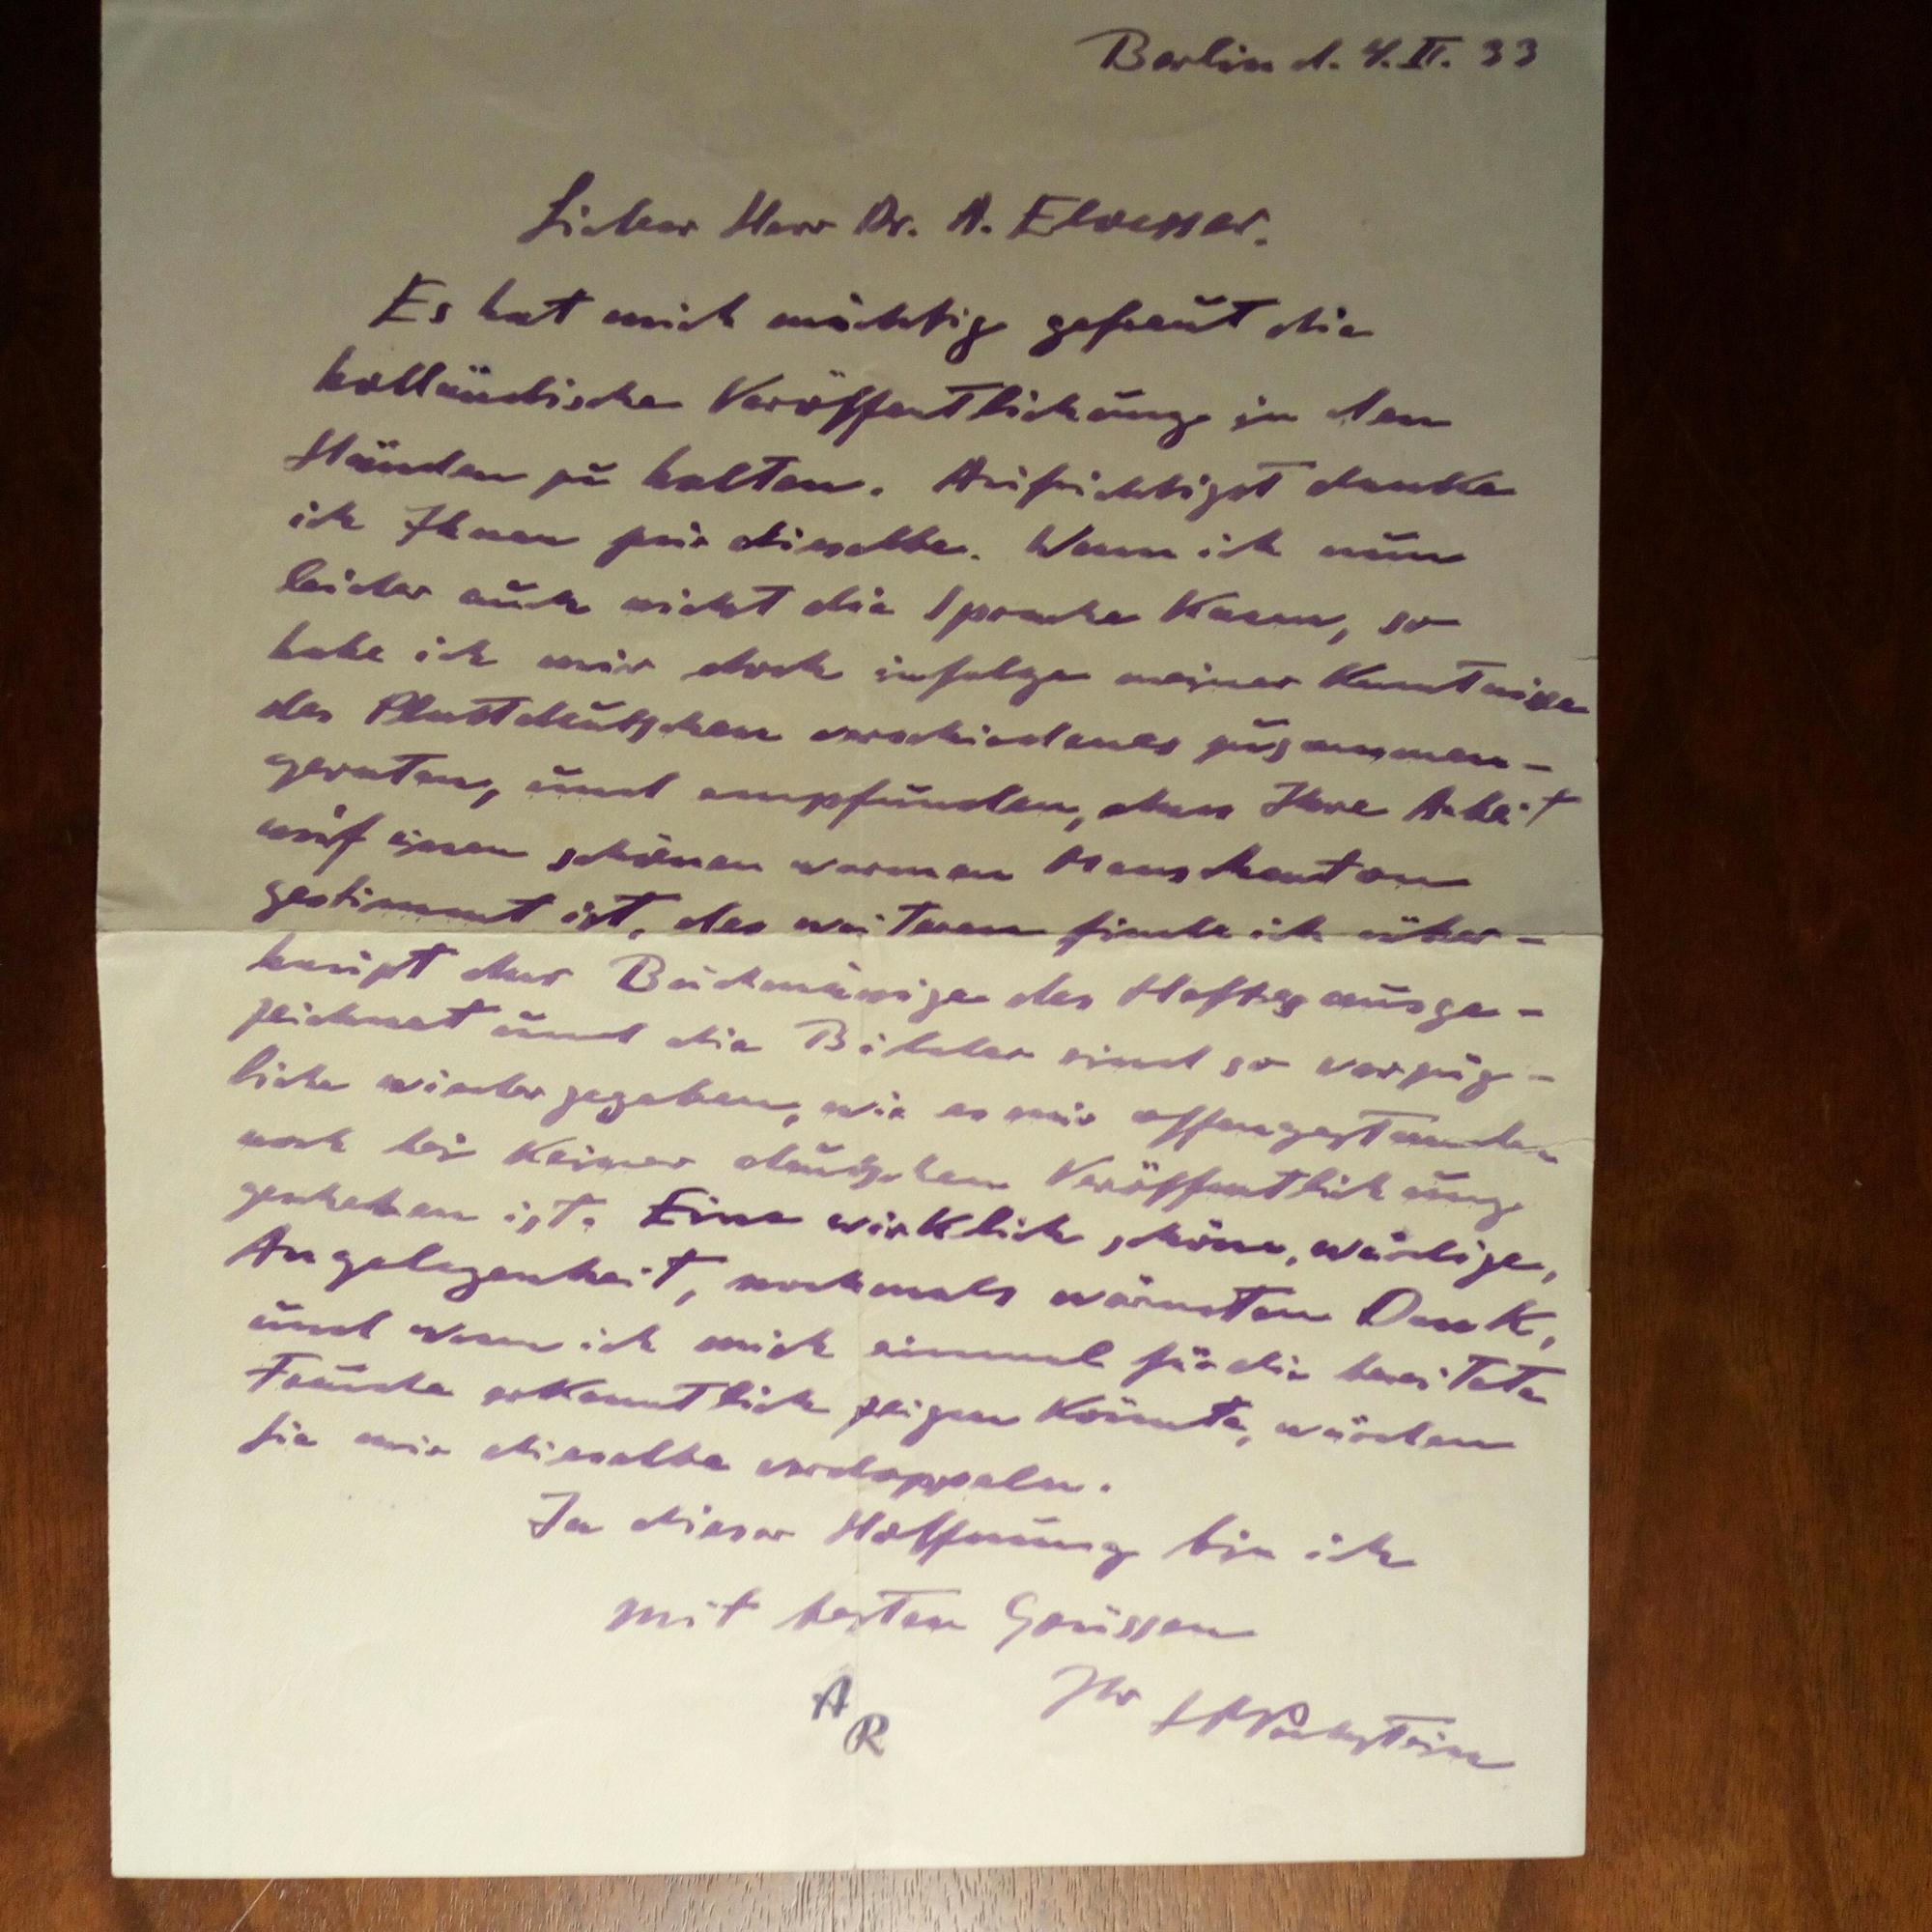 Berlin d. 4. II. 33
Lieber Herr Dr. A. Eloesser.
Es hat mich mächtig gefreut die
holländische Veröffentlichung in den
Händen zu halten. Aufrichtigst danke
ich Ihnen für dieselbe. Wenn ich nun
leider auch nicht die Sprache kann, so
habe ich mir doch infolge meiner Kenntnisse
des Plattdeutschen verschiedenes zusammen-
geraten, und empfunden, dass Ihre Arbeit
auf einen schönen warmen
gestimmt ist, des weiteren finde ich über-
haupt das Buchmässige des Heftes ausge-
zeichnet und die Bilder sind so vorzüg-
lich wiedergegeben, wie es mir offengestanden
noch bei keiner deutschen Veröffentlichung
geschehen ist. Eine wirklich schöne, würdige,
Angelegenheit, nochmals wärmsten Dank,
und wenn ich mich einmal für die bereitete
Freude erkenntlich zeigen könnte, würden
Sie mir dieselbe verdoppeln.
In dieser Hoffnung bin ich
mit besten Grüssen
Ihr HMPechstein
A
R